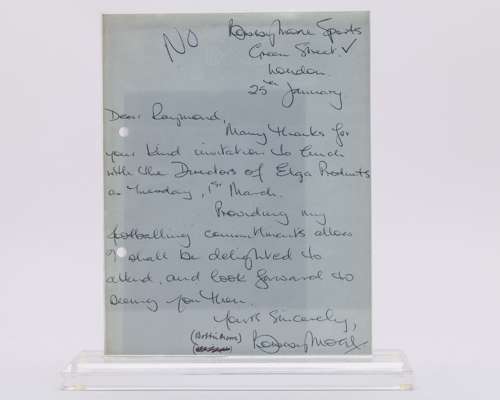 NO
Bobby Moore Sports
Green Street. ✓
London.
25th January
Dear Raymond,
Many thanks for
your kind invitation to lunch
with the Directors of Elga Products
on Tuesday, 1st March.
Providing my
footballing commitments allow
I shall be delighted to
attend, and look forward to
seeing you then.
Yours Sincerely,
Bobby Moore